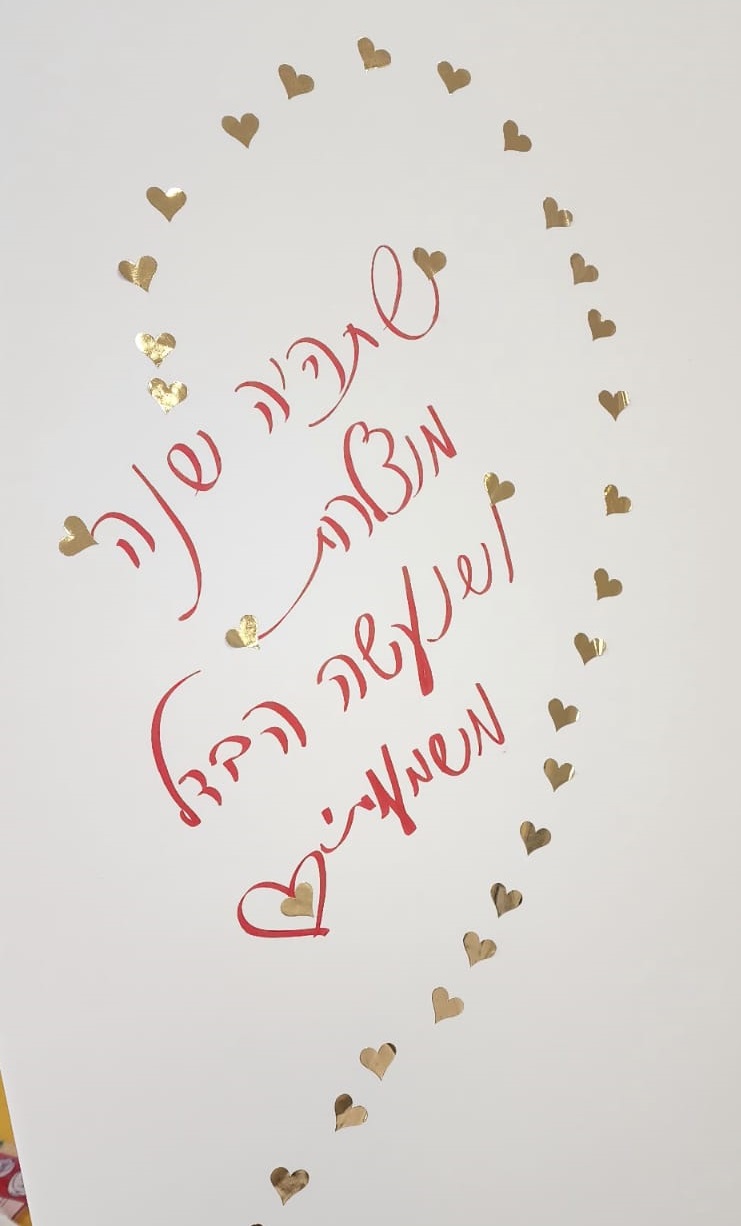 שתהיה שנה
מוצלחת
ושנעשה הבדל
משמעותי